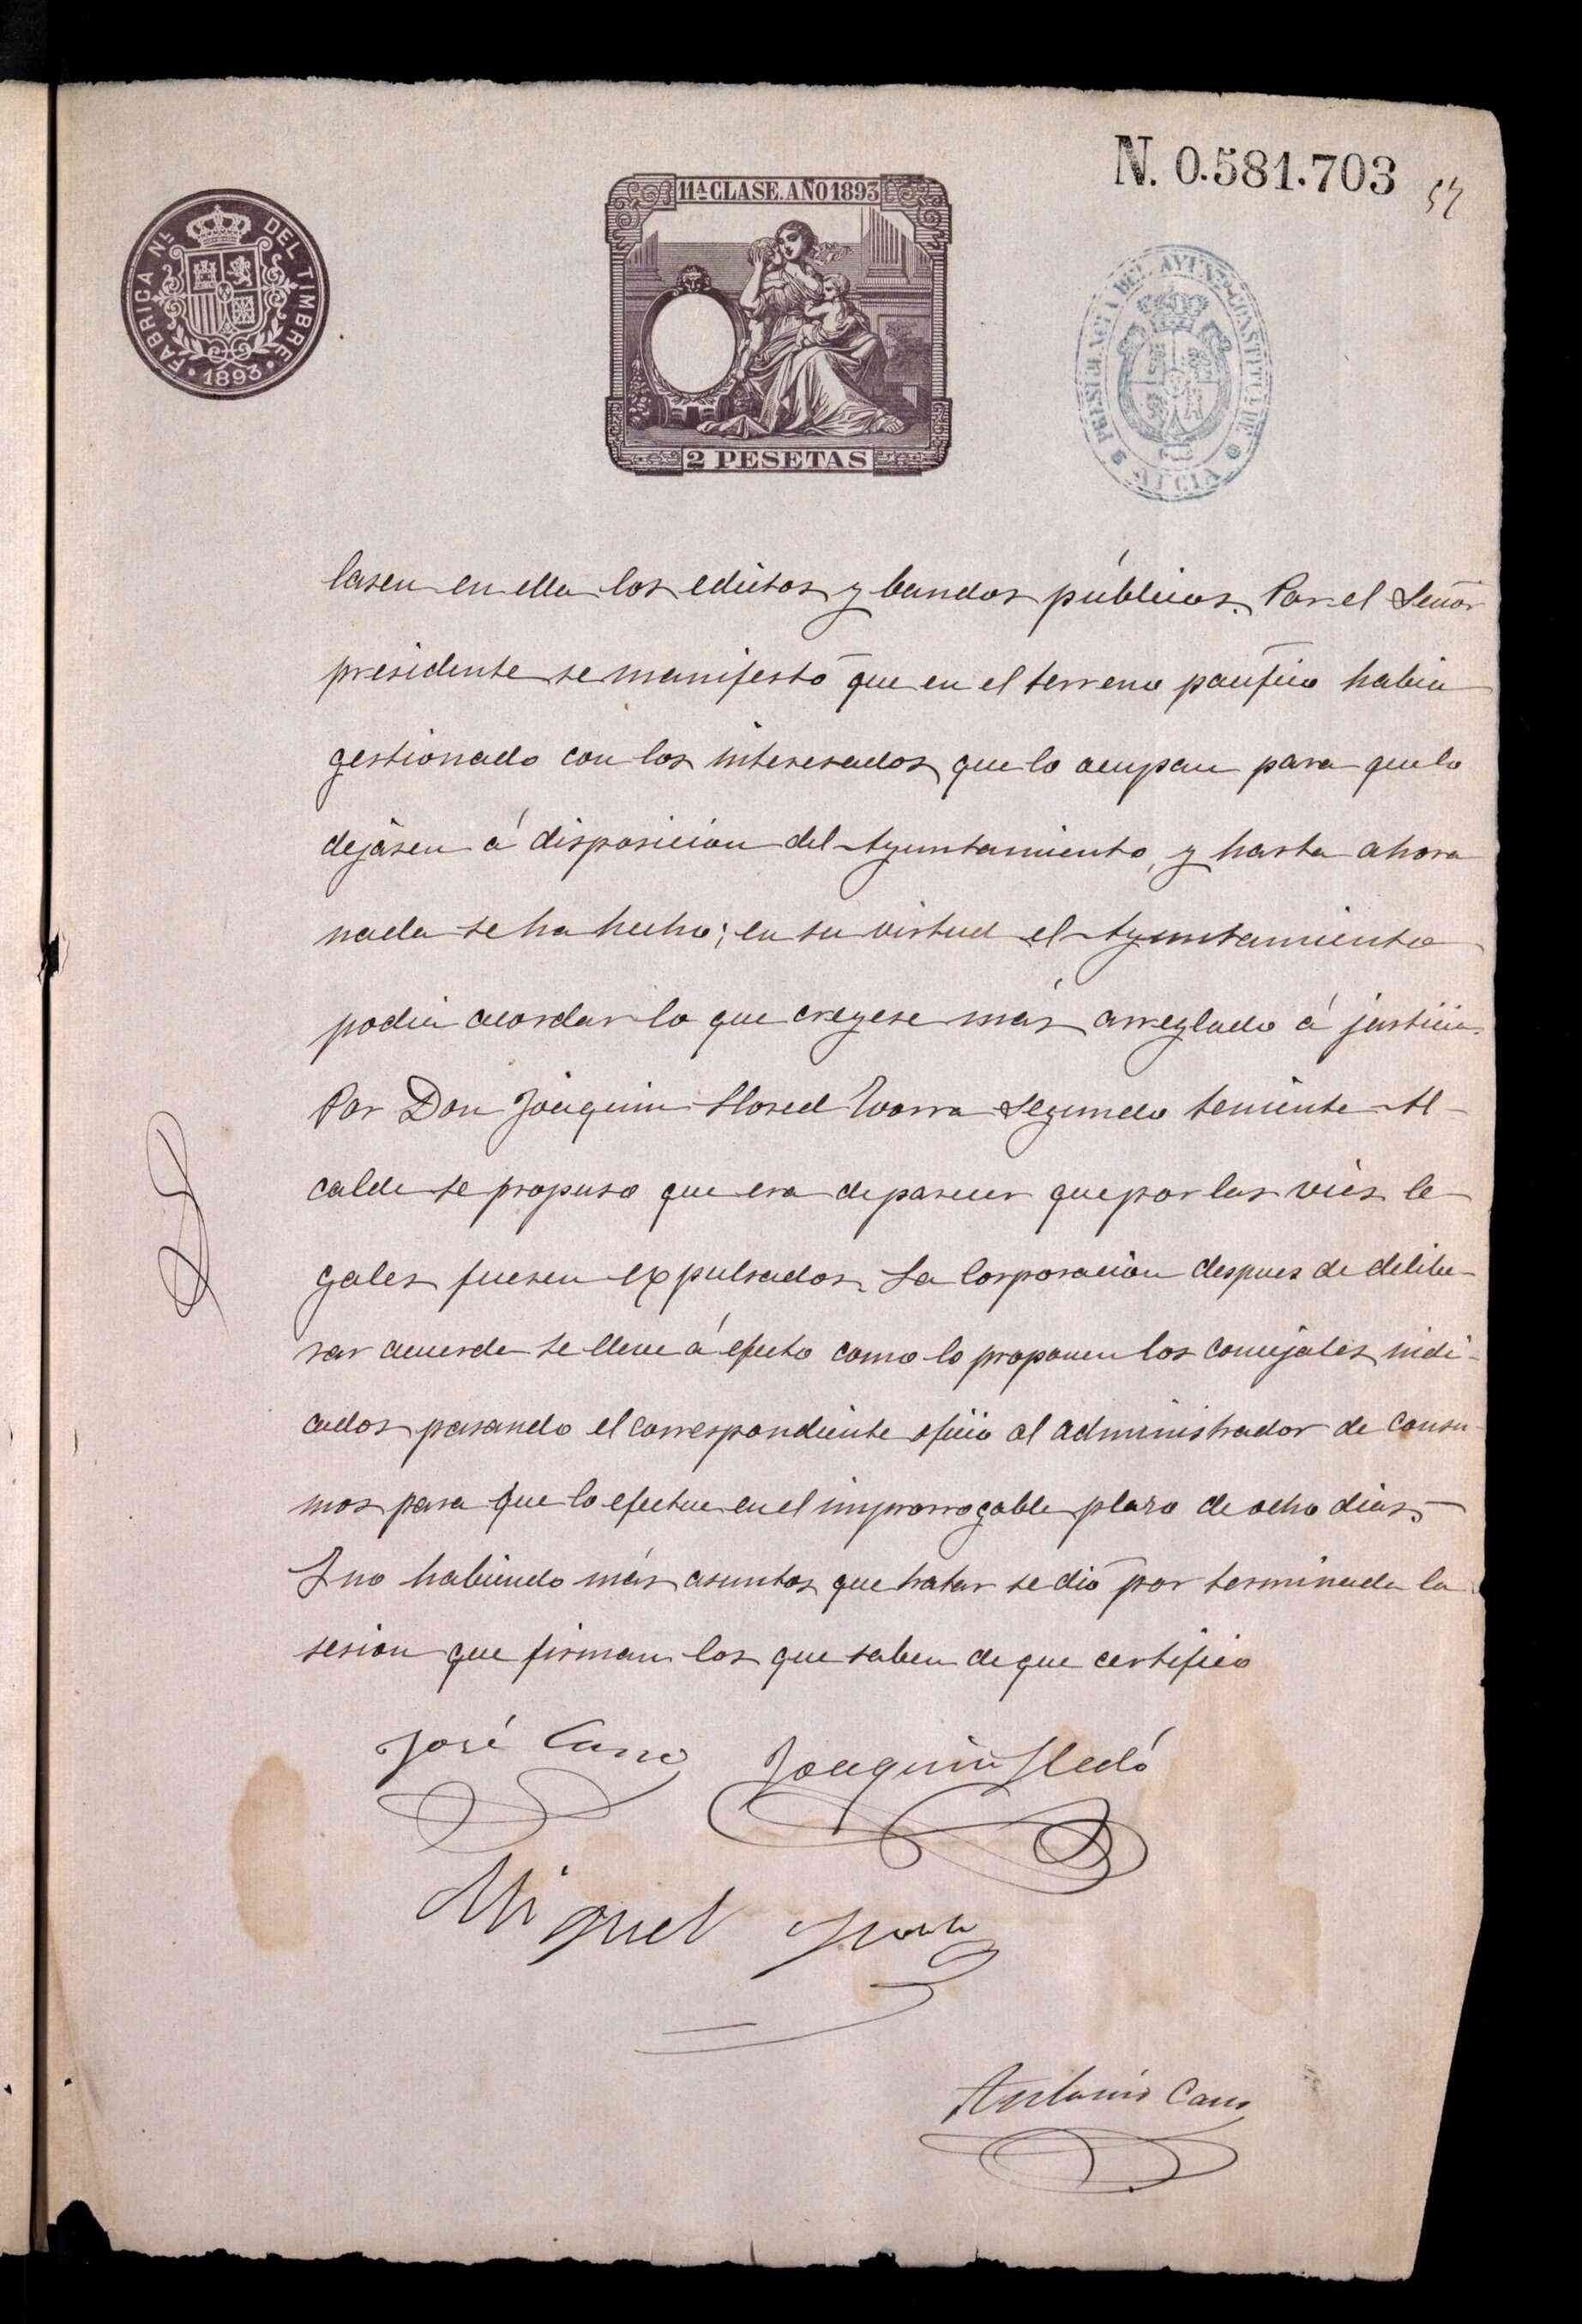 N. 0.581.703
54
11ª CLASE. AÑO 1893
FABRICA Nᴸ DEL TIMBRE
1893
PRESIDENCIA DEL AYUNT. CONSTITUL. DE
2 PESETAS
lasen en ella los edictos y bandos públicos. Por el Señor
presidente se manifestó que en el terreno pacífico habia
gestionado con los interesados que lo ocupan para que lo
dejásen á disposicion del Ayuntamiento, y hasta ahora
nada se ha hecho; en su virtud el Ayuntamiento
podia acordar lo que creyese más arreglado á justicia.
Por Don Joaquin Llored Ivorra Segundo teniente Al-
calde se propuso que era de parecer que por las vias le-
gales fuesen expulsados. La Corporacion despues de delibe-
rar acuerda se lleve á efecto como lo proponen los concejales indi-
cados pasando el correspondiente oficio al administrador de Consu-
mos para que lo efectue en el improrrogable plazo de ocho dias.
Y no habiendo más asuntos que tratar se dió por terminada la
sesion que firman los que saben de que certifico
José Cano
Joaquin Lledó
Miguel
Antonio Cano